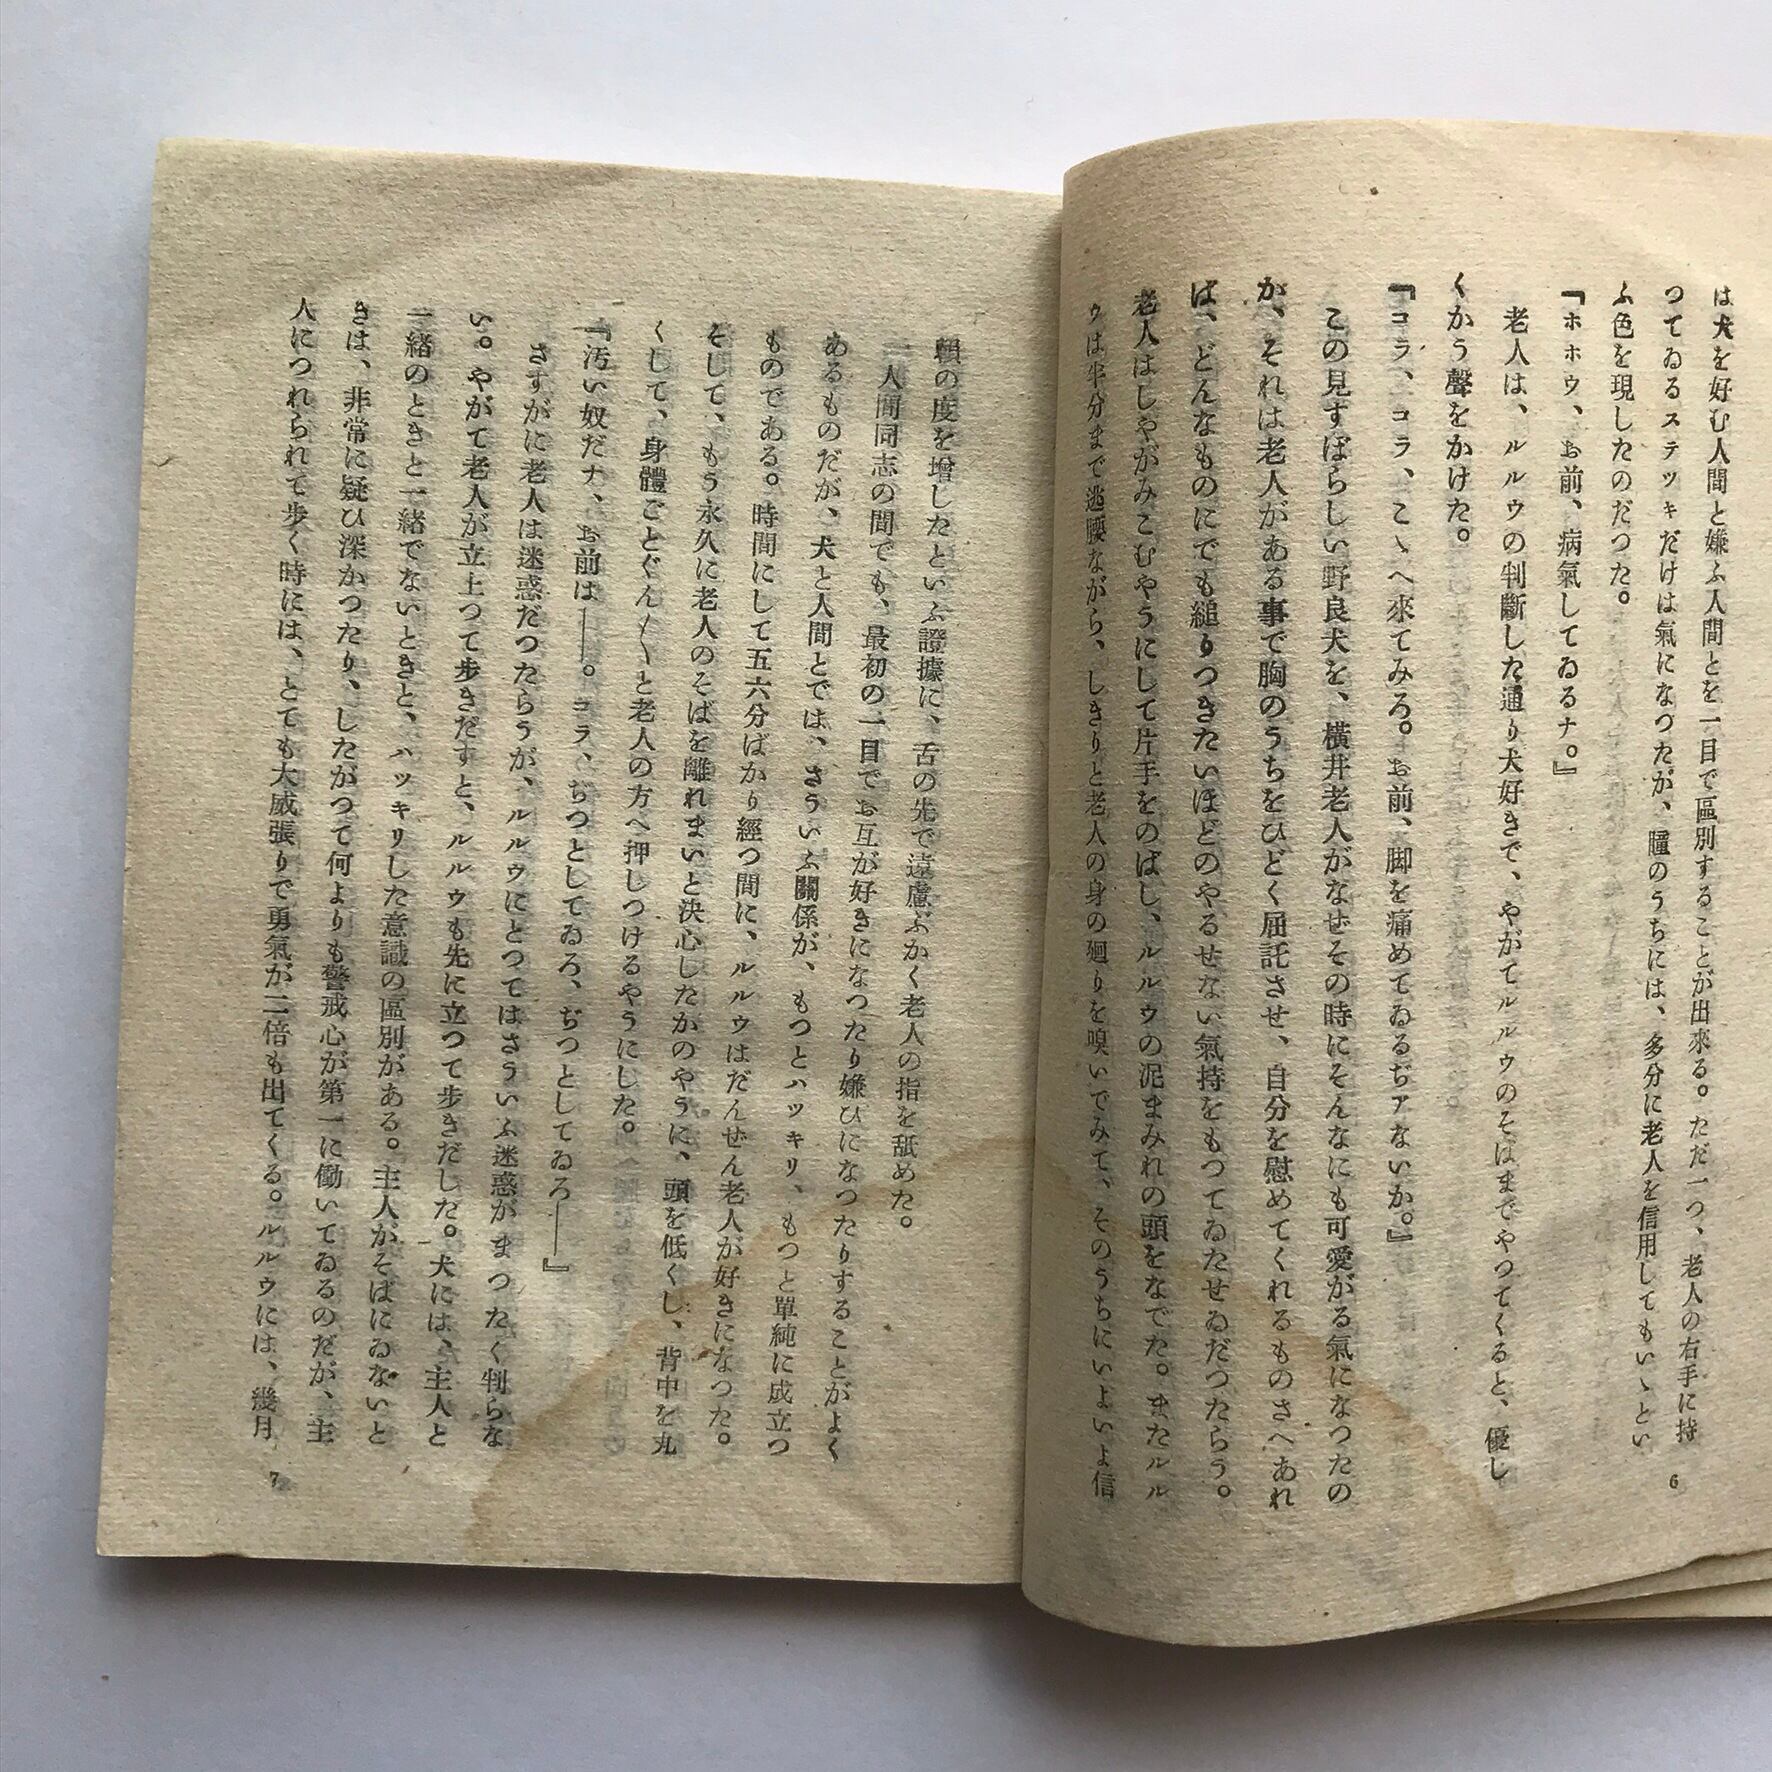 は犬を好む人間と嫌ふ人間とを一目で區別することが出來る。ただ一つ、老人の右手に持
つてゐるステツキだけは氣になつたが、瞳のうちには、多分に老人を信用してもいゝとい
ふ色を現したのだつた。
『ホホウ、お前、病氣してゐるナ。』
老人は、ルルウの判斷した通り犬好きで、やがてルルウのそばまでやつてくると、優し
くかう聲をかけた。
『コラ、コラ、こゝへ來てみろ。お前、脚を痛めてゐるぢアないか。』
この見すぼらしい野良犬を、横井老人がなぜその時にそんなにも可愛がる氣になつたの
か、それは老人がある事で胸のうちをひどく屈託させ、自分を慰めてくれるものさへあれ
ば、どんなものにでも縋りつきたいほどのやるせない氣持をもつてゐたせゐだつたらう。
老人はしやがみこむやうにして片手をのばし、ルルウの泥まみれの頭をなでた。またルル
ウは半分まで逃腰ながら、しきりと老人の身の廻りを嗅いでみて、そのうちにいよいよ信
6
賴の度を增したといふ證據に、舌の先で遠慮ぶかく老人の指を舐めた。
人間同志の間でも、最初の一目でお互が好きになつたり嫌ひになつたりすることがよく
あるものだが、犬と人間とでは、さういふ關係が、もつとハツキリ、もつと單純に成立つ
ものである。時間にして五六分ばかり經つ間に、ルルウはだんぜん老人が好きになつた。
そして、もう永久に老人のそばを離れまいと決心したかのやうに、頭を低くし、背中を丸
くして、身體ごとぐん〳〵と老人の方へ押しつけるやうにした。
『汚い奴だナ、お前は――。コラ、ぢつとしてゐろ、ぢつとしてゐろ――』
さすがに老人は迷惑だつたらうが、ルルウにとつてはさういふ迷惑がまつたく判らな
い。やがて老人が立上つて歩きだすと、ルルウも先に立つて歩きだした。犬には、主人と
一緒のときと一緒でないときと、ハツキリした意識の區別がある。主人がそばにゐないと
きは、非常に疑ひ深かつたり、したがつて何よりも警戒心が第一に働いてゐるのだが、主
人につれられて歩く時には、とても大威張りで勇氣が二倍も出てくる。ルルウには、幾月
7